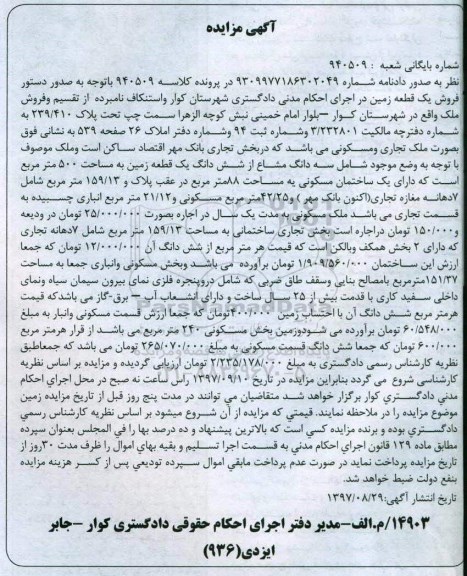 آگهی مزایده
شماره بایگانی شعبه : ۹۴۰۵۰۹
نظر به صدور دادنامه شماره ۹۳۰۹۹۷۷۱۸۶۳۰۲۰۴۹ در پرونده کلاسه ۹۴۰۵۰۹ باتوجه به صدور دستور
فروش یک قطعه زمین در اجرای احکام مدنی دادگستری شهرستان کوار واستنکاف نامبرده از تقسیم وفروش
ملک واقع در شهرستان کوار –بلوار امام خمینی نبش کوچه الزهرا سمت چپ تحت پلاک ۲۳۹/۴۱۰ به
شماره دفترچه مالکیت ۳/۲۳۲۸۰۱ وشماره ثبت ۹۴ وشماره دفتر املاک ۲۶ صفحه ۵۳۹ به نشانی فوق
بصورت ملک تجاری ومسکونی می باشد که دربخش تجاری بانک مهر اقتصاد ساکن است وملک موصوف
با توجه به وضع موجود شامل سه دانگ مشاع از شش دانگ یک قطعه زمین به مساحت ۵۰۰ متر مربع
است که دارای یک ساختمان مسکونی به مساحت ۸۸متر مربع در عقب پلاک و ۱۵۹/۱۳ متر مربع شامل
۷دهانه مغازه تجاری(اکنون بانک مهر ) و۴۲/۲۵متر مربع مسکونی و۲۱/۱۲ متر مربع انباری چسبیده به
قسمت تجاری می باشد ملک مسکونی به مدت یک سال در اجاره بصورت ۲۵/۰۰۰/۰۰۰ تومان در ودیعه
و۱۵۰/۰۰۰ تومان دراجاره است بخش تجاری ساختمانی به مساحت ۱۵۹/۱۳ متر مربع شامل ۷دهانه تجاری
که دارای ۲ بخش همکف وبالکن است که قیمت هر متر مربع از شش دانگ آن ۱۲/۰۰۰/۰۰۰ تومان که جمعا
ارزش این ساختمان ۱/۹۰۹/۵۶۰/۰۰۰ تومان برآورده می باشد وبخش مسکونی وانباری جمعا به مساحت
۱۵۱/۳۷مترمربع بامصالح بنایی وسقف طاق ضربی که شامل دروپنجره فلزی نمای بیرون سیمان سیاه ونمای
داخلی سفید کاری با قدمت بیش از ۲۵ سال ساخت و دارای انشعاب آب – برق-گاز می باشدکه قیمت
هرمتر مربع شش دانگ آن با احتساب زمین ۴۰۰/۰۰۰تومان که جمعا ارزش قسمت مسکونی وانبار به مبلغ
۶۰/۵۴۸/۰۰۰ تومان برآورده می شودوزمین بخش مسکونی ۲۴۰ متر مربع می باشد از قرار هرمتر مربع
۶۰۰/۰۰۰ تومان که جمعا شش دانگ قسمت مسکونی به مبلغ ۲۶۵/۰۷۰/۰۰۰ تومان می باشد که جمعاطبق
نظریه کارشناس رسمی دادگستری به مبلغ ۲/۲۳۵/۱۷۸/۰۰۰ تومان ارزیابی گردیده و مزایده بر اساس نظریه
کارشناسی شروع می گردد بنابراین مزایده در تاریخ ۱۳۹۷/۰۹/۱۰ راس ساعت نه صبح در محل اجرای احکام
مدنی دادگستری کوار برگزار خواهد شد متقاضیان می توانند در مدت پنج روز قبل از تاریخ مزایده زمین
موضوع مزایده را در ملاحظه نمایند. قیمتی که مزایده از آن شروع میشود بر اساس نظریه کارشناس رسمی
دادگستری بوده و برنده مزایده کسی است که بالاترین پیشنهاد و ده درصد بها را فی المجلس بعنوان سپرده
مطابق ماده ۱۲۹ قانون اجرای احکام مدنی به قسمت اجرا تسلیم و بقیه بهای اموال را ظرف مدت ۳۰روز از
تاریخ مزایده پرداخت نماید در صورت عدم پرداخت مابقی اموال سپرده تودیعی پس از کسر هزینه مزایده
بنفع دولت ضبط خواهد شد.
تاریخ انتشار آگهی:۱۳۹۷/۰۸/۲۹
۱۴۹۰۳/م.الف–مدیر دفتر اجرای احکام حقوقی دادگستری کوار –جابر
ایزدی(۹۳۶)